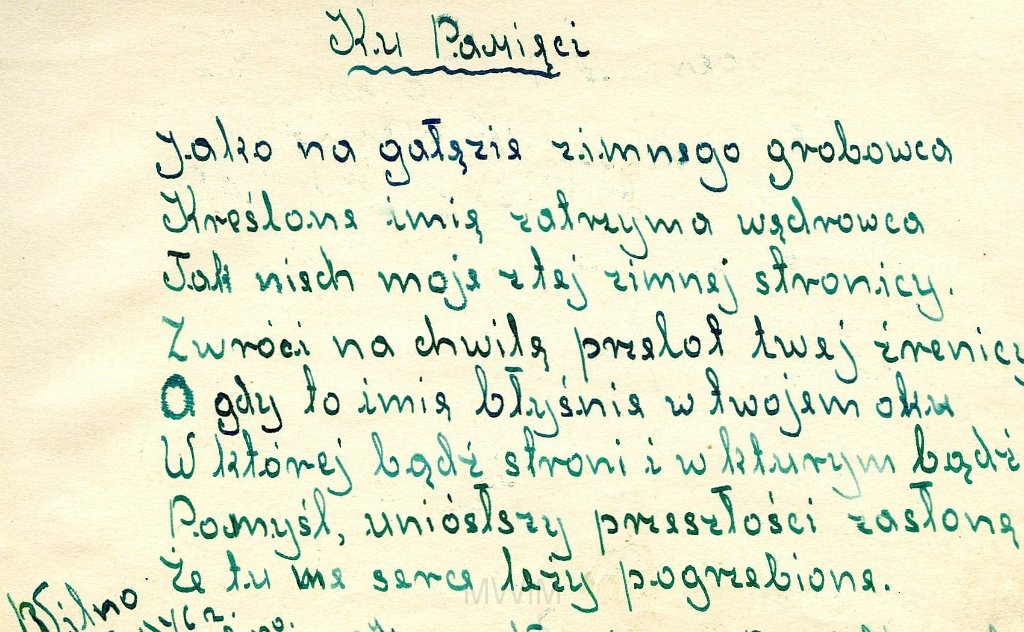 Ku Pamięci
Jako na gałęzie zimnego grobowca
Kreślone imię zatrzyma wędrowca
Tak niech moje z tej zimnej stronicy.
Zwróci na chwilę przelot twej źrenicy
O gdy to imię błyśnie w twojem oku
W której bądź stroni i w kturym bądź
Pomyśl, uniósłszy przeszłości zasłonę
Że tu me serce leży pogrzebione.
Wilno
MWM